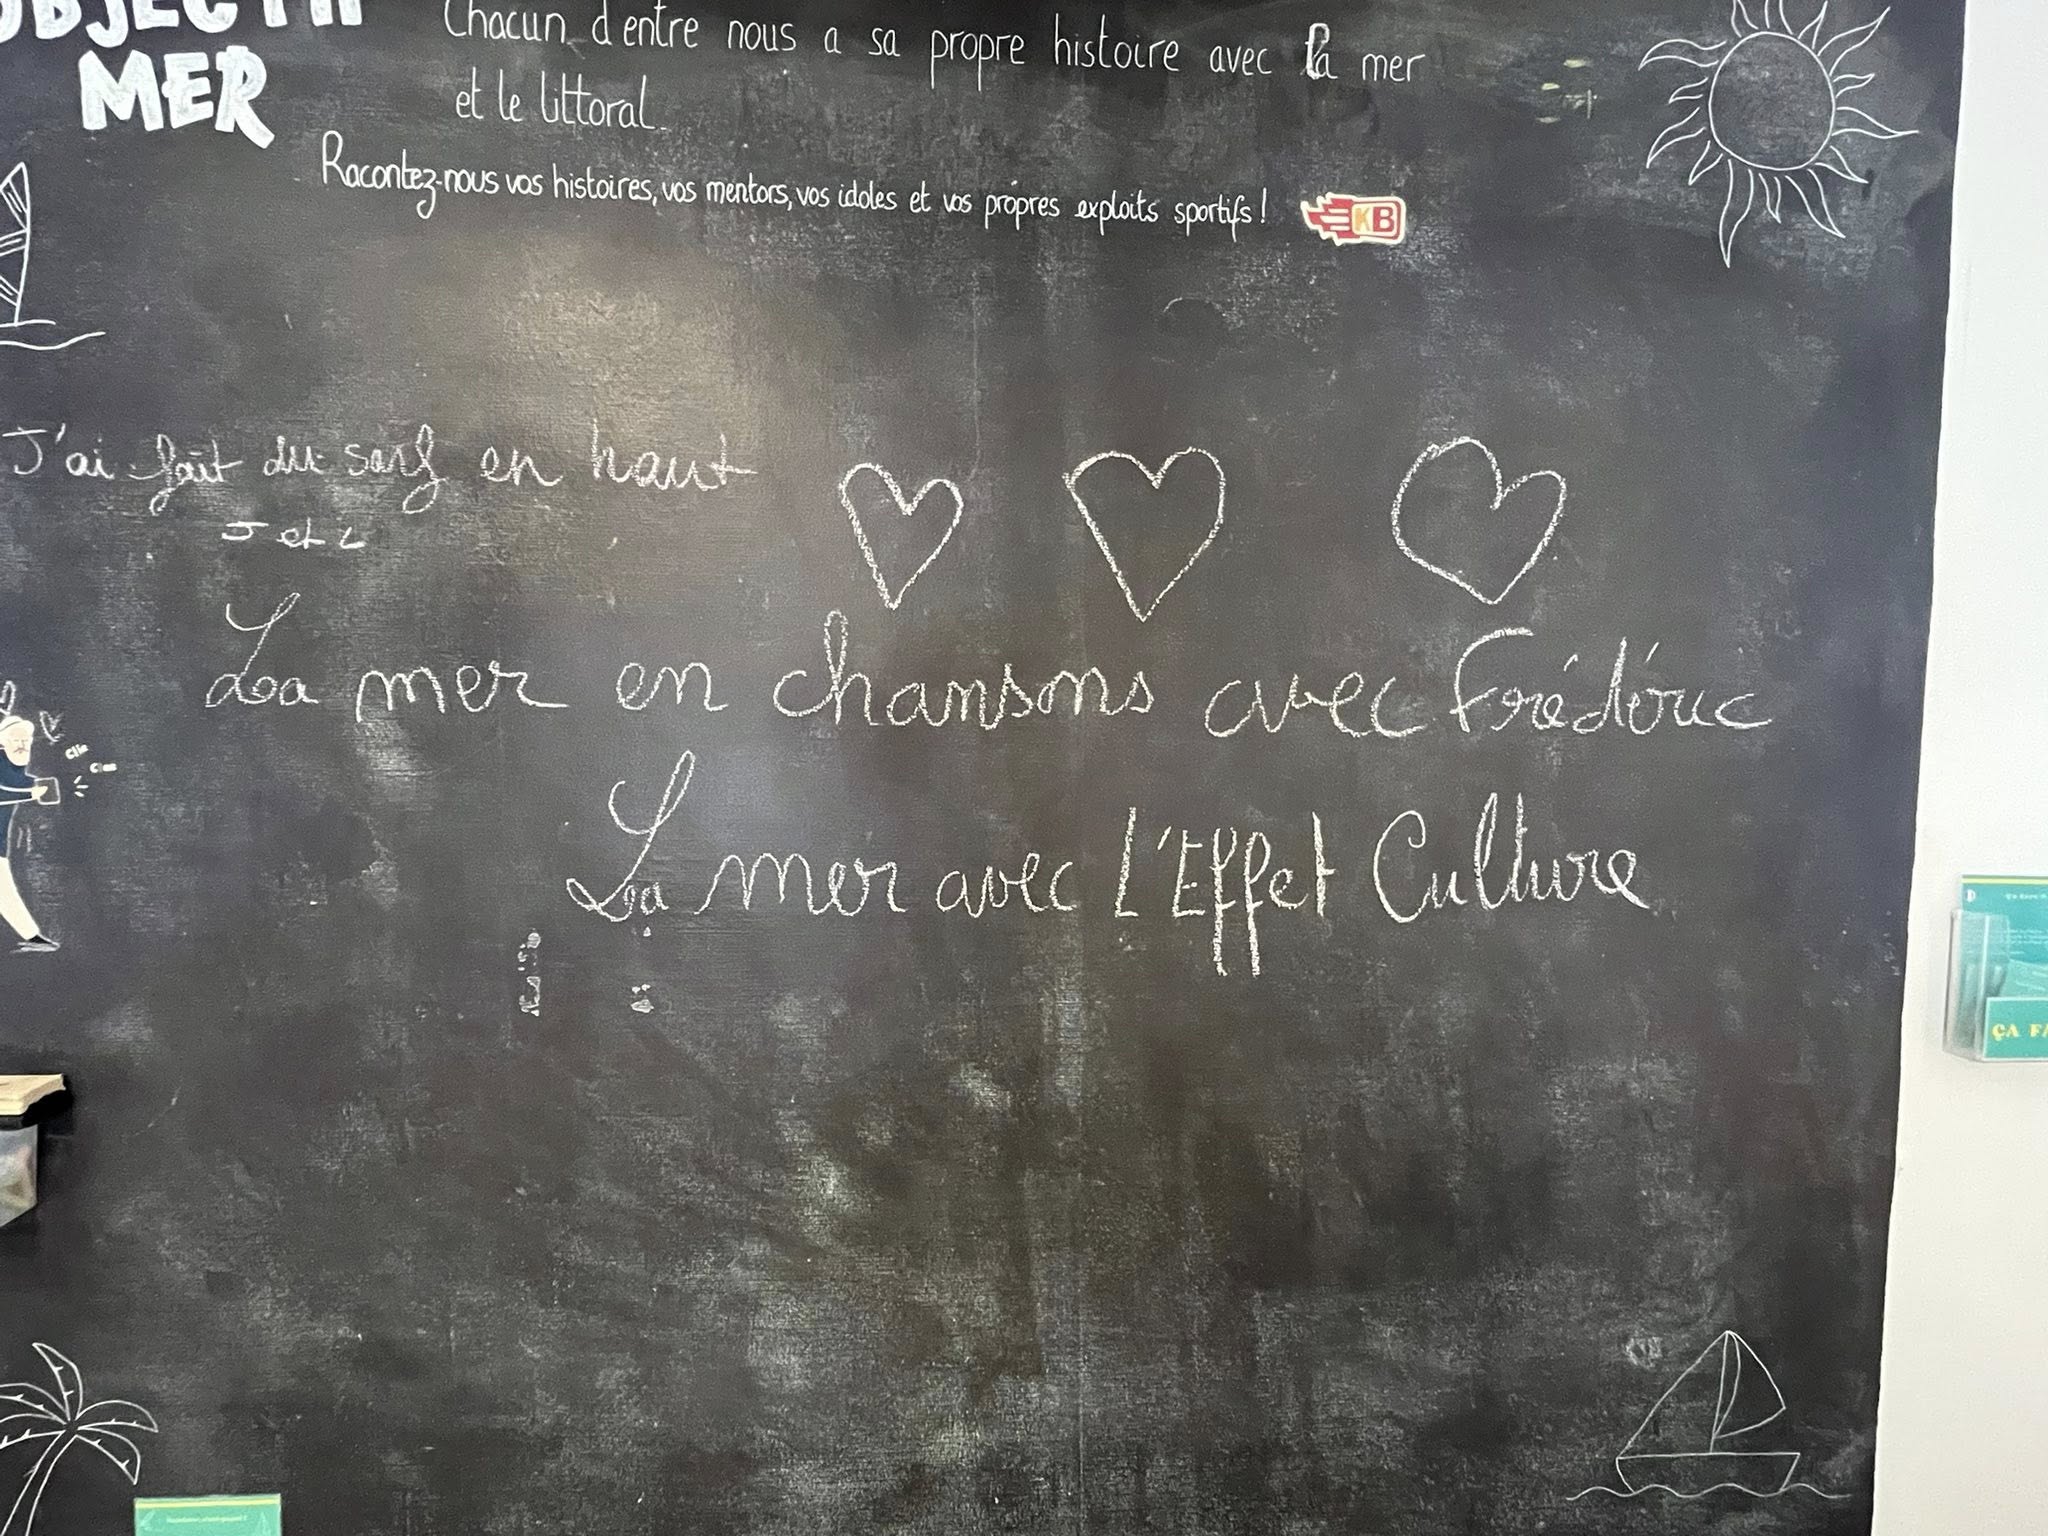 OBJECTIF
MER
Chacun d'entre nous a sa propre histoire avec la mer
et le littoral.
Racontez-nous vos histoires, vos mentors, vos idoles et vos propres exploits sportifs !
KB
J'ai fait du sarf en haut
J et L
La mer en chansons avec Frédéric
La mer avec L'Effet Culture
ÇA FA